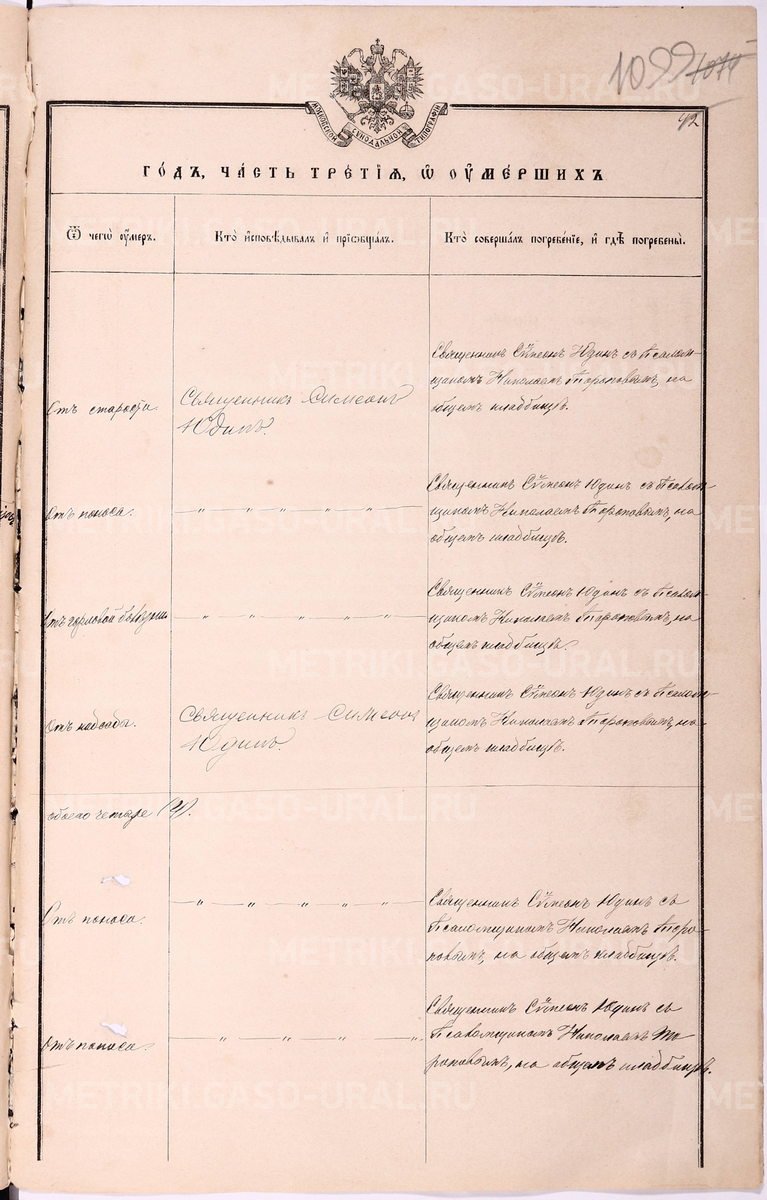 1099 1074
42
МОСКОВСКОЙ СѴНОДАЛЬНОЙ ТИПОГРАФІИ
ГО́ДЪ, ЧА́СТЬ ТРЕ́ТІѦ, Ѡ ОУМЕ́РШИХЪ
Ѿ чегѡ̀ оу́меръ.
Кто̀ и҆сповѣ́дывалъ и҆ прїѡбща́лъ.
Кто̀ соверша́лъ погребе́нїе, и҆ гдѣ̀ погребены̀.
Отъ старости
Священникъ Симеонъ
Юдинъ.
Священникъ Сѵмеонъ Юдинъ съ Псалом-
щикомъ Николаемъ Тороповымъ, на
общемъ кладбищѣ.
Отъ поноса.
" " " " " "
Священникъ Сѵмеонъ Юдинъ съ Псалом-
щикомъ Николаемъ Тороповымъ, на
общемъ кладбищѣ.
Отъ горловой болѣзни
" " " " "
Священникъ Сѵмеонъ Юдинъ съ Псалом-
щикомъ Николаемъ Тороповымъ, на
общемъ кладбищѣ.
Отъ
Священникъ Симеонъ
Юдинъ.
Священникъ Сѵмеонъ Юдинъ съ Псалом-
щикомъ Николаемъ Тороповымъ, на
общемъ кладбищѣ.
обоего четыре (4).
Отъ поноса.
" " " " "
Священникъ Сѵмеонъ Юдинъ съ
Псаломщикомъ Николаемъ Торо-
повымъ, на общемъ кладбищѣ.
Отъ поноса.
" " " " "
Священникъ Сѵмеонъ Юдинъ съ
Псаломщикомъ Николаемъ То-
роповымъ, на общемъ кладбищѣ.
METRIKI.GASO-URAL.RU